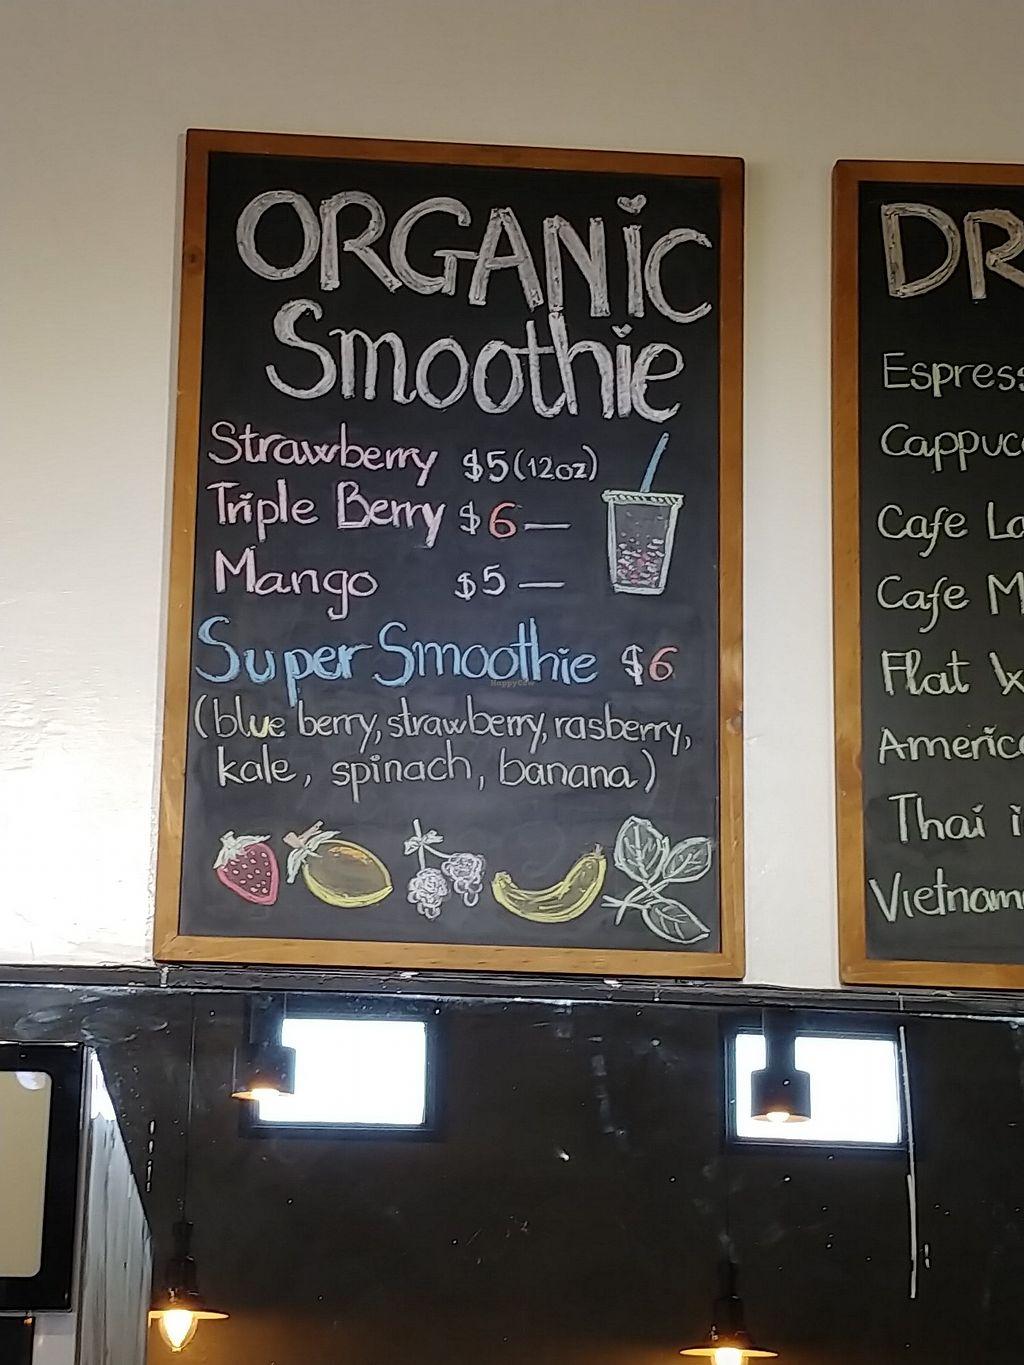 ORGANIC
Smoothie
Strawberry $5 (12oz)
Triple Berry $6 —
Mango $5 —
Super Smoothie $6
(blue berry, strawberry, rasberry,
kale, spinach, banana)
HappyCow
Espress
Cappuc
Cafe
Cafe M
Flat
Americ
Thai i
Vietnam